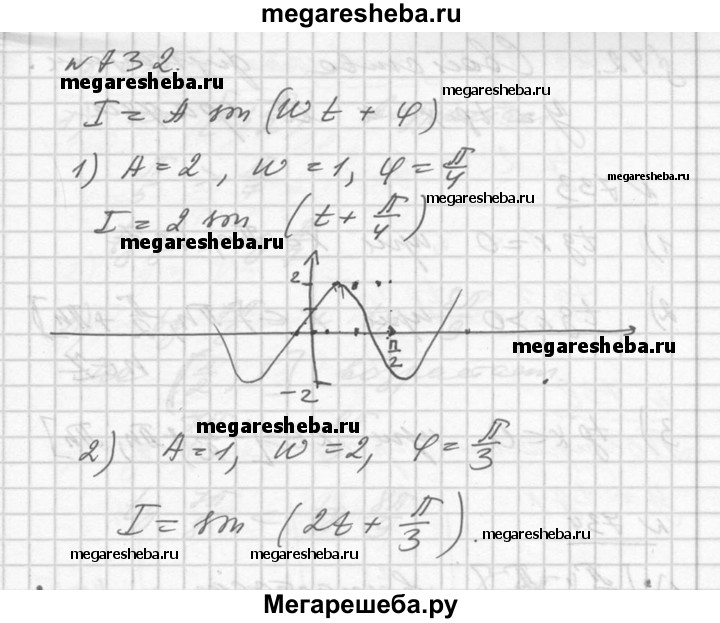 megaresheba.ru
N 732.
megaresheba.ru
megaresheba.ru
I = A sin (ωt + φ)
1) A = 2, ω = 1, φ = π/4
megaresheba.ru
megaresheba.ru
I = 2 sin (t + π/4)
megaresheba.ru
2
π/2
megaresheba.ru
-2
megaresheba.ru
2) A = 1, ω = 2, φ = π/3
I = sin (2t + π/3).
megaresheba.ru
megaresheba.ru
megaresheba.ru
megaresheba.ru
Мегарешеба.ру